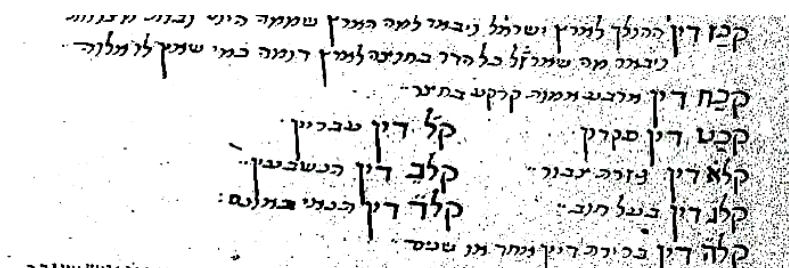 קכז דין ההולך לארץ ישראל ויבאר למה הארץ שממה היום
ויבאר מה שאר״זל כל הדר בחוצה לארץ דומה כמי שאין לו אלוה
קכח דין ארבע אמות קרקע בחצר
קכט דין סקריקון קל דין עבריין
קלא דין גזרת צבור קלב דין הנשבעין
קלג דין בעל חוב קלד דין
קלה דין ברירת דיין אחד מן שנים